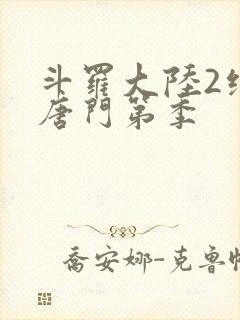 斗羅大陸2
唐門第季
喬安娜-克魯